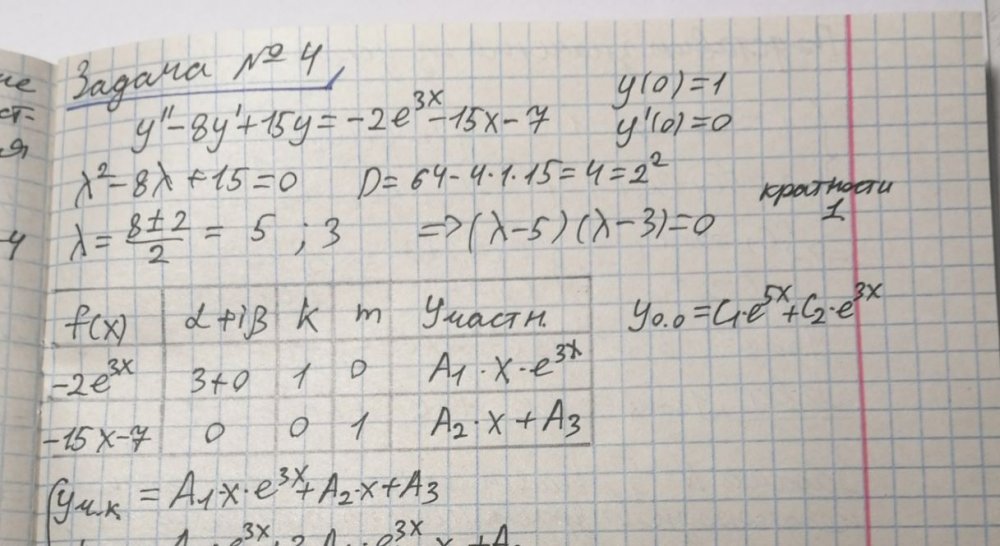 Задача № 4
y'' - 8y' + 15y = -2e^{3x} - 15x - 7
y(0) = 1
y'(0) = 0
λ² - 8λ + 15 = 0 D = 64 - 4·1·15 = 4 = 2²
λ = (8±2)/2 = 5 ; 3 => (λ-5)(λ-3) = 0
кратности
1
f(x) α+iβ k m Yчастн.
-2e^{3x} 3+0 1 0 A₁·x·e^{3x}
-15x-7 0 0 1 A₂·x + A₃
y₀.₀ = C₁·e^{5x} + C₂·e^{3x}
yч.н. = A₁·x·e^{3x} + A₂·x + A₃